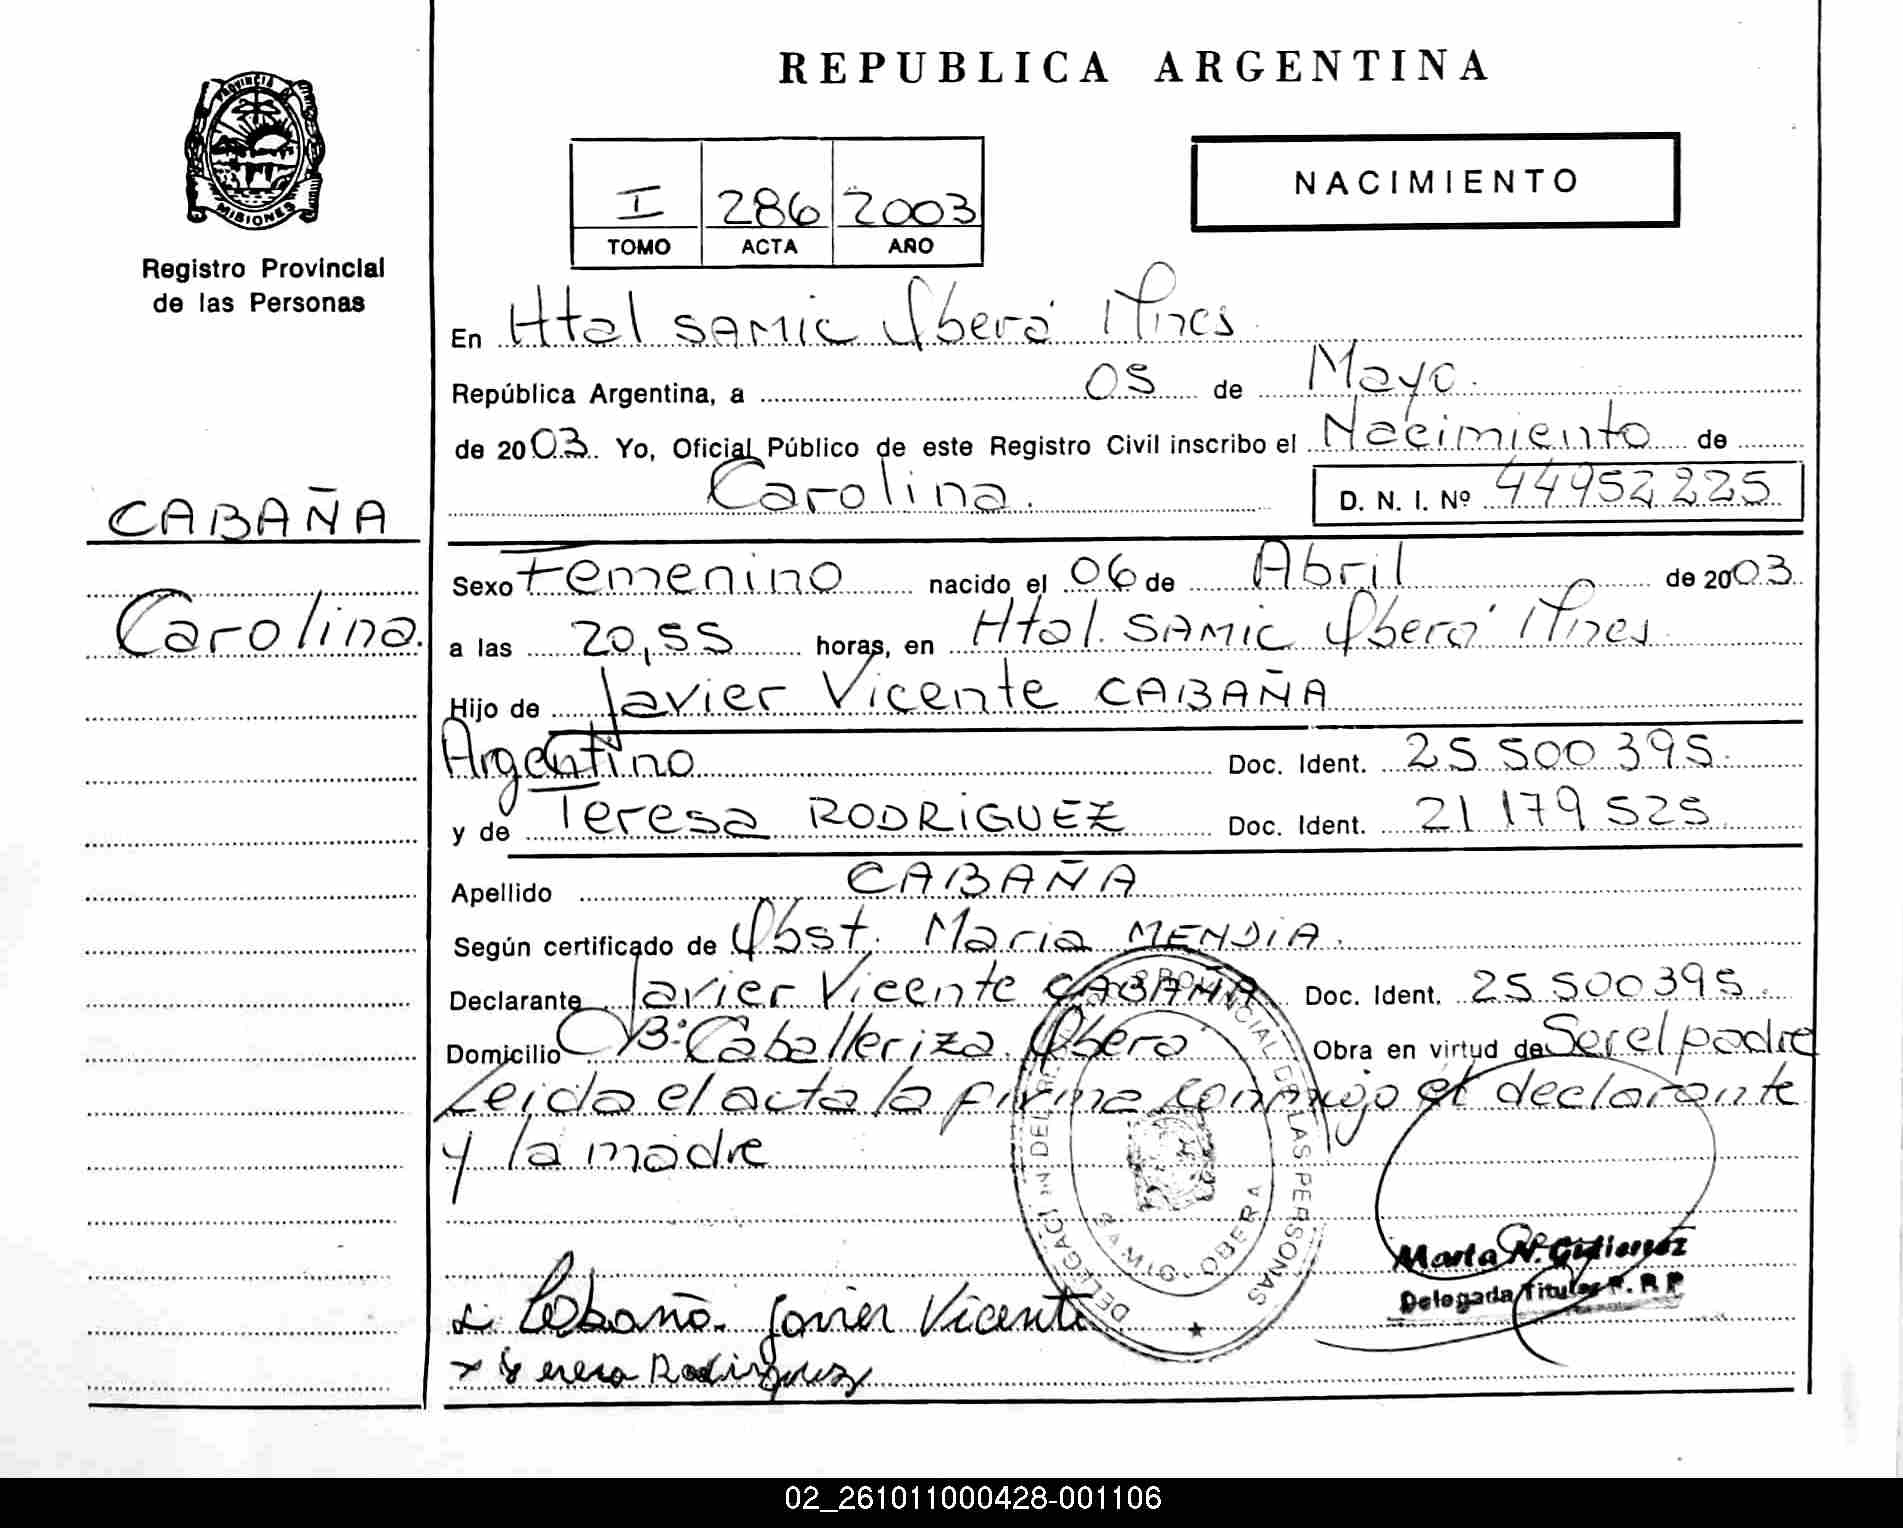 REPUBLICA ARGENTINA
PROVINCIA
MISIONES
Registro Provincial
de las Personas
I 286 2003
TOMO ACTA AÑO
NACIMIENTO
En Htal SAMIC Oberá Mnes
República Argentina, a 05 de Mayo.
de 2003. Yo, Oficial Público de este Registro Civil inscribo el Nacimiento de
Carolina. D. N. I. Nº 44952225
CABAÑA
Carolina.
Sexo Femenino nacido el 06 de Abril de 2003
a las 20,55 horas, en Htal. SAMIC Oberá Mnes
Hijo de Javier Vicente CABAÑA
Argentino Doc. Ident. 25 500 395.
y de Teresa RODRIGUEZ Doc. Ident. 21 179 525
Apellido CABAÑA
Según certificado de Obst. Maria MENDIA.
Declarante Javier Vicente CABAÑA Doc. Ident. 25 500 395.
Domicilio Bº Caballeriza. Oberá Obra en virtud de Ser el padre
Leida el acta la firma conmigo el declarante
y la madre
DELEGACION DEL REGISTRO PROVINCIAL DE LAS PERSONAS
SAMIC - OBERA
Marta N. Gutierrez
Delegada Titular R. P. P
Cabaña Javier Vicente
x Teresa Rodriguez
02_261011000428-001106